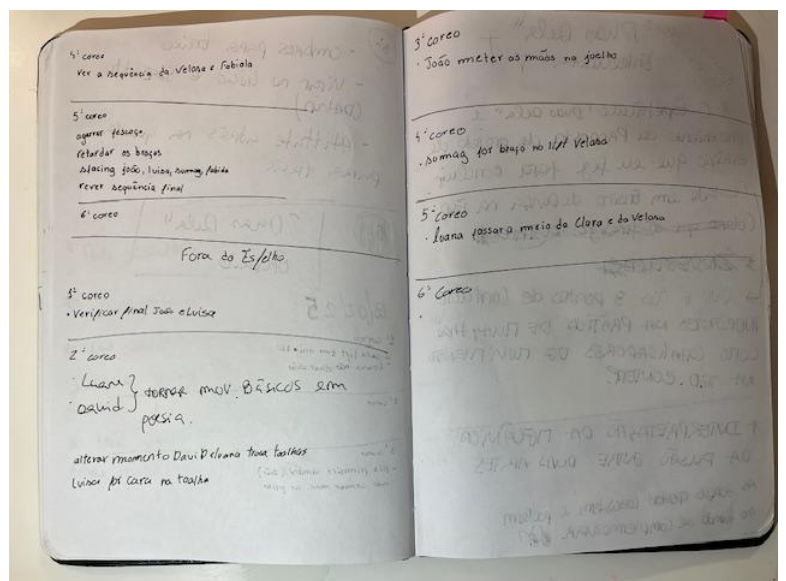 4ª coreo
ver a sequência da Velosa e Fabiola
5ª coreo
agarrar pescoço
retardar os braços
stacing joão, luisa, sumag, fabiola
rever sequência final
6ª coreo
Fora do Espelho
1ª coreo
• Verificar final João e Luisa
2ª coreo
· Luana } tornar mov. Básicos em
· David } poesia.
alterar momento David e luana troca toalhas
luisa pôr cara na toalha
3ª coreo
· João meter as mãos no joelho
4ª coreo
· sumag por braço no lift Velosa
5ª coreo
· luana passar a meio da Clara e da Velosa
6ª coreo
·